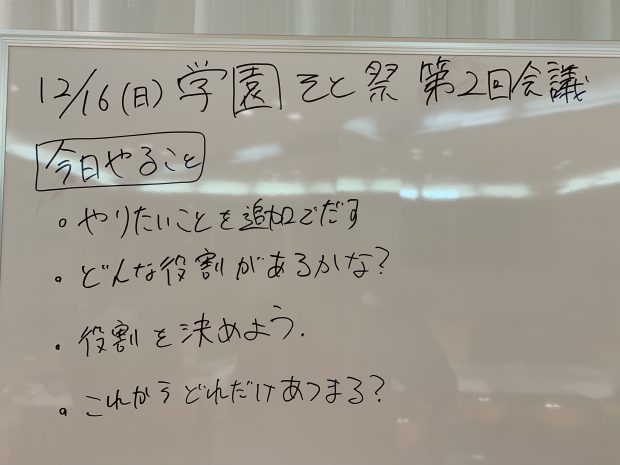 12/16(日) 学園そと祭 第2回会議
今日やること
・やりたいことを追加でだす
・どんな役割があるかな?
・役割を決めよう.
・これからどれだけあつまる?